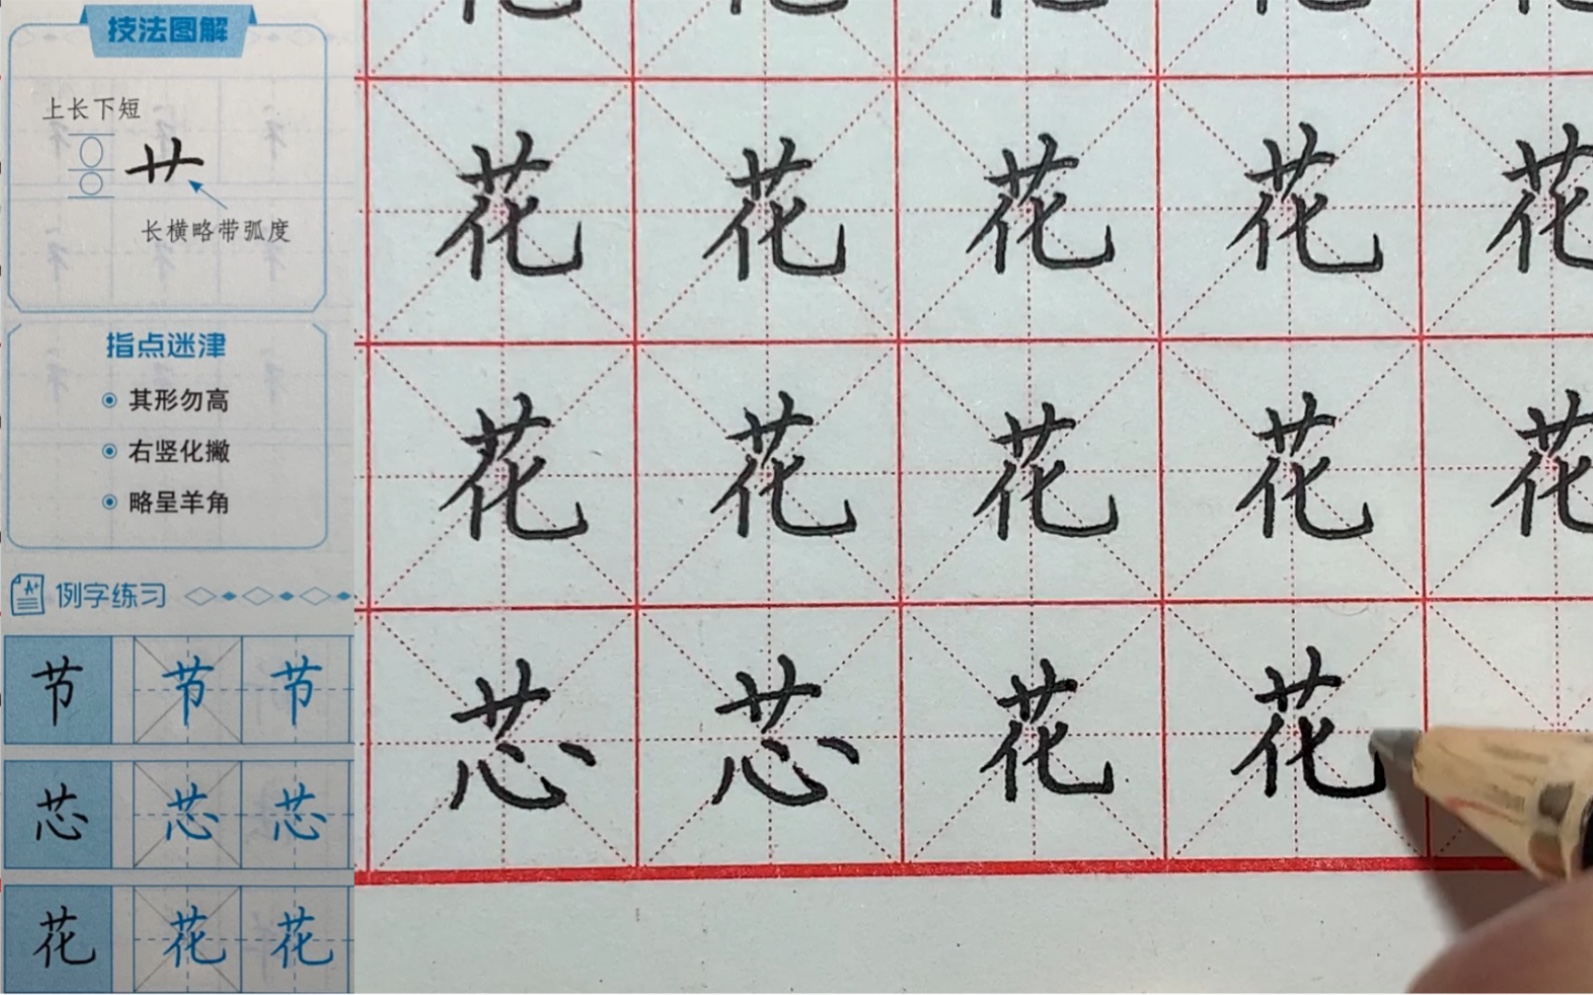 技法图解
上长下短
艹
长横略带弧度
指点迷津
其形勿高
右竖化撇
略呈羊角
例字练习
节 节 节
芯 芯 芯
花 花 花
花 花 花 花 花
花 花 花 花 花
芯 芯 花 花